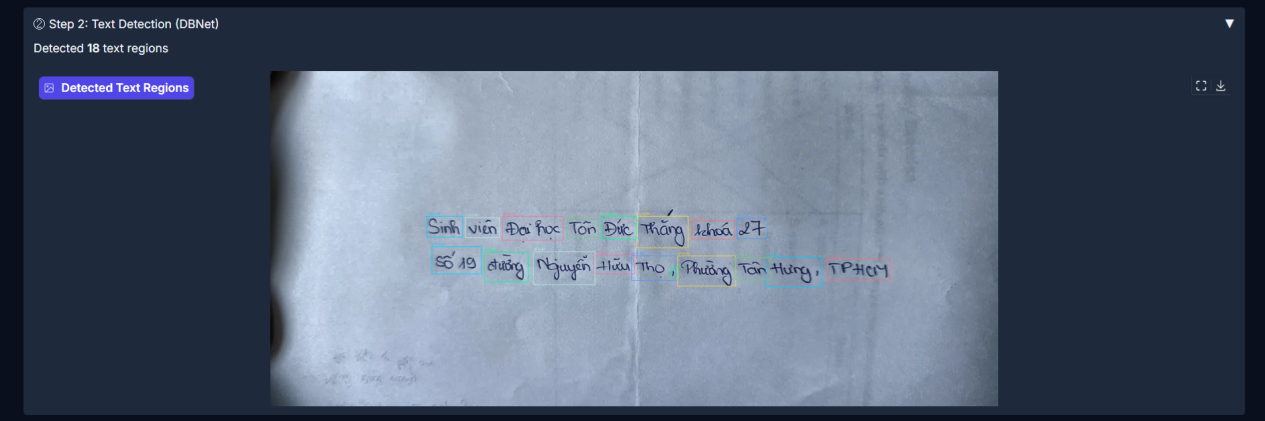 ② Step 2: Text Detection (DBNet)
Detected 18 text regions
Detected Text Regions
Sinh viên Đại học Tôn Đức Thắng khoá 27
Số 19 đường Nguyễn Hữu Thọ, Phường Tân Hưng, TPHCM